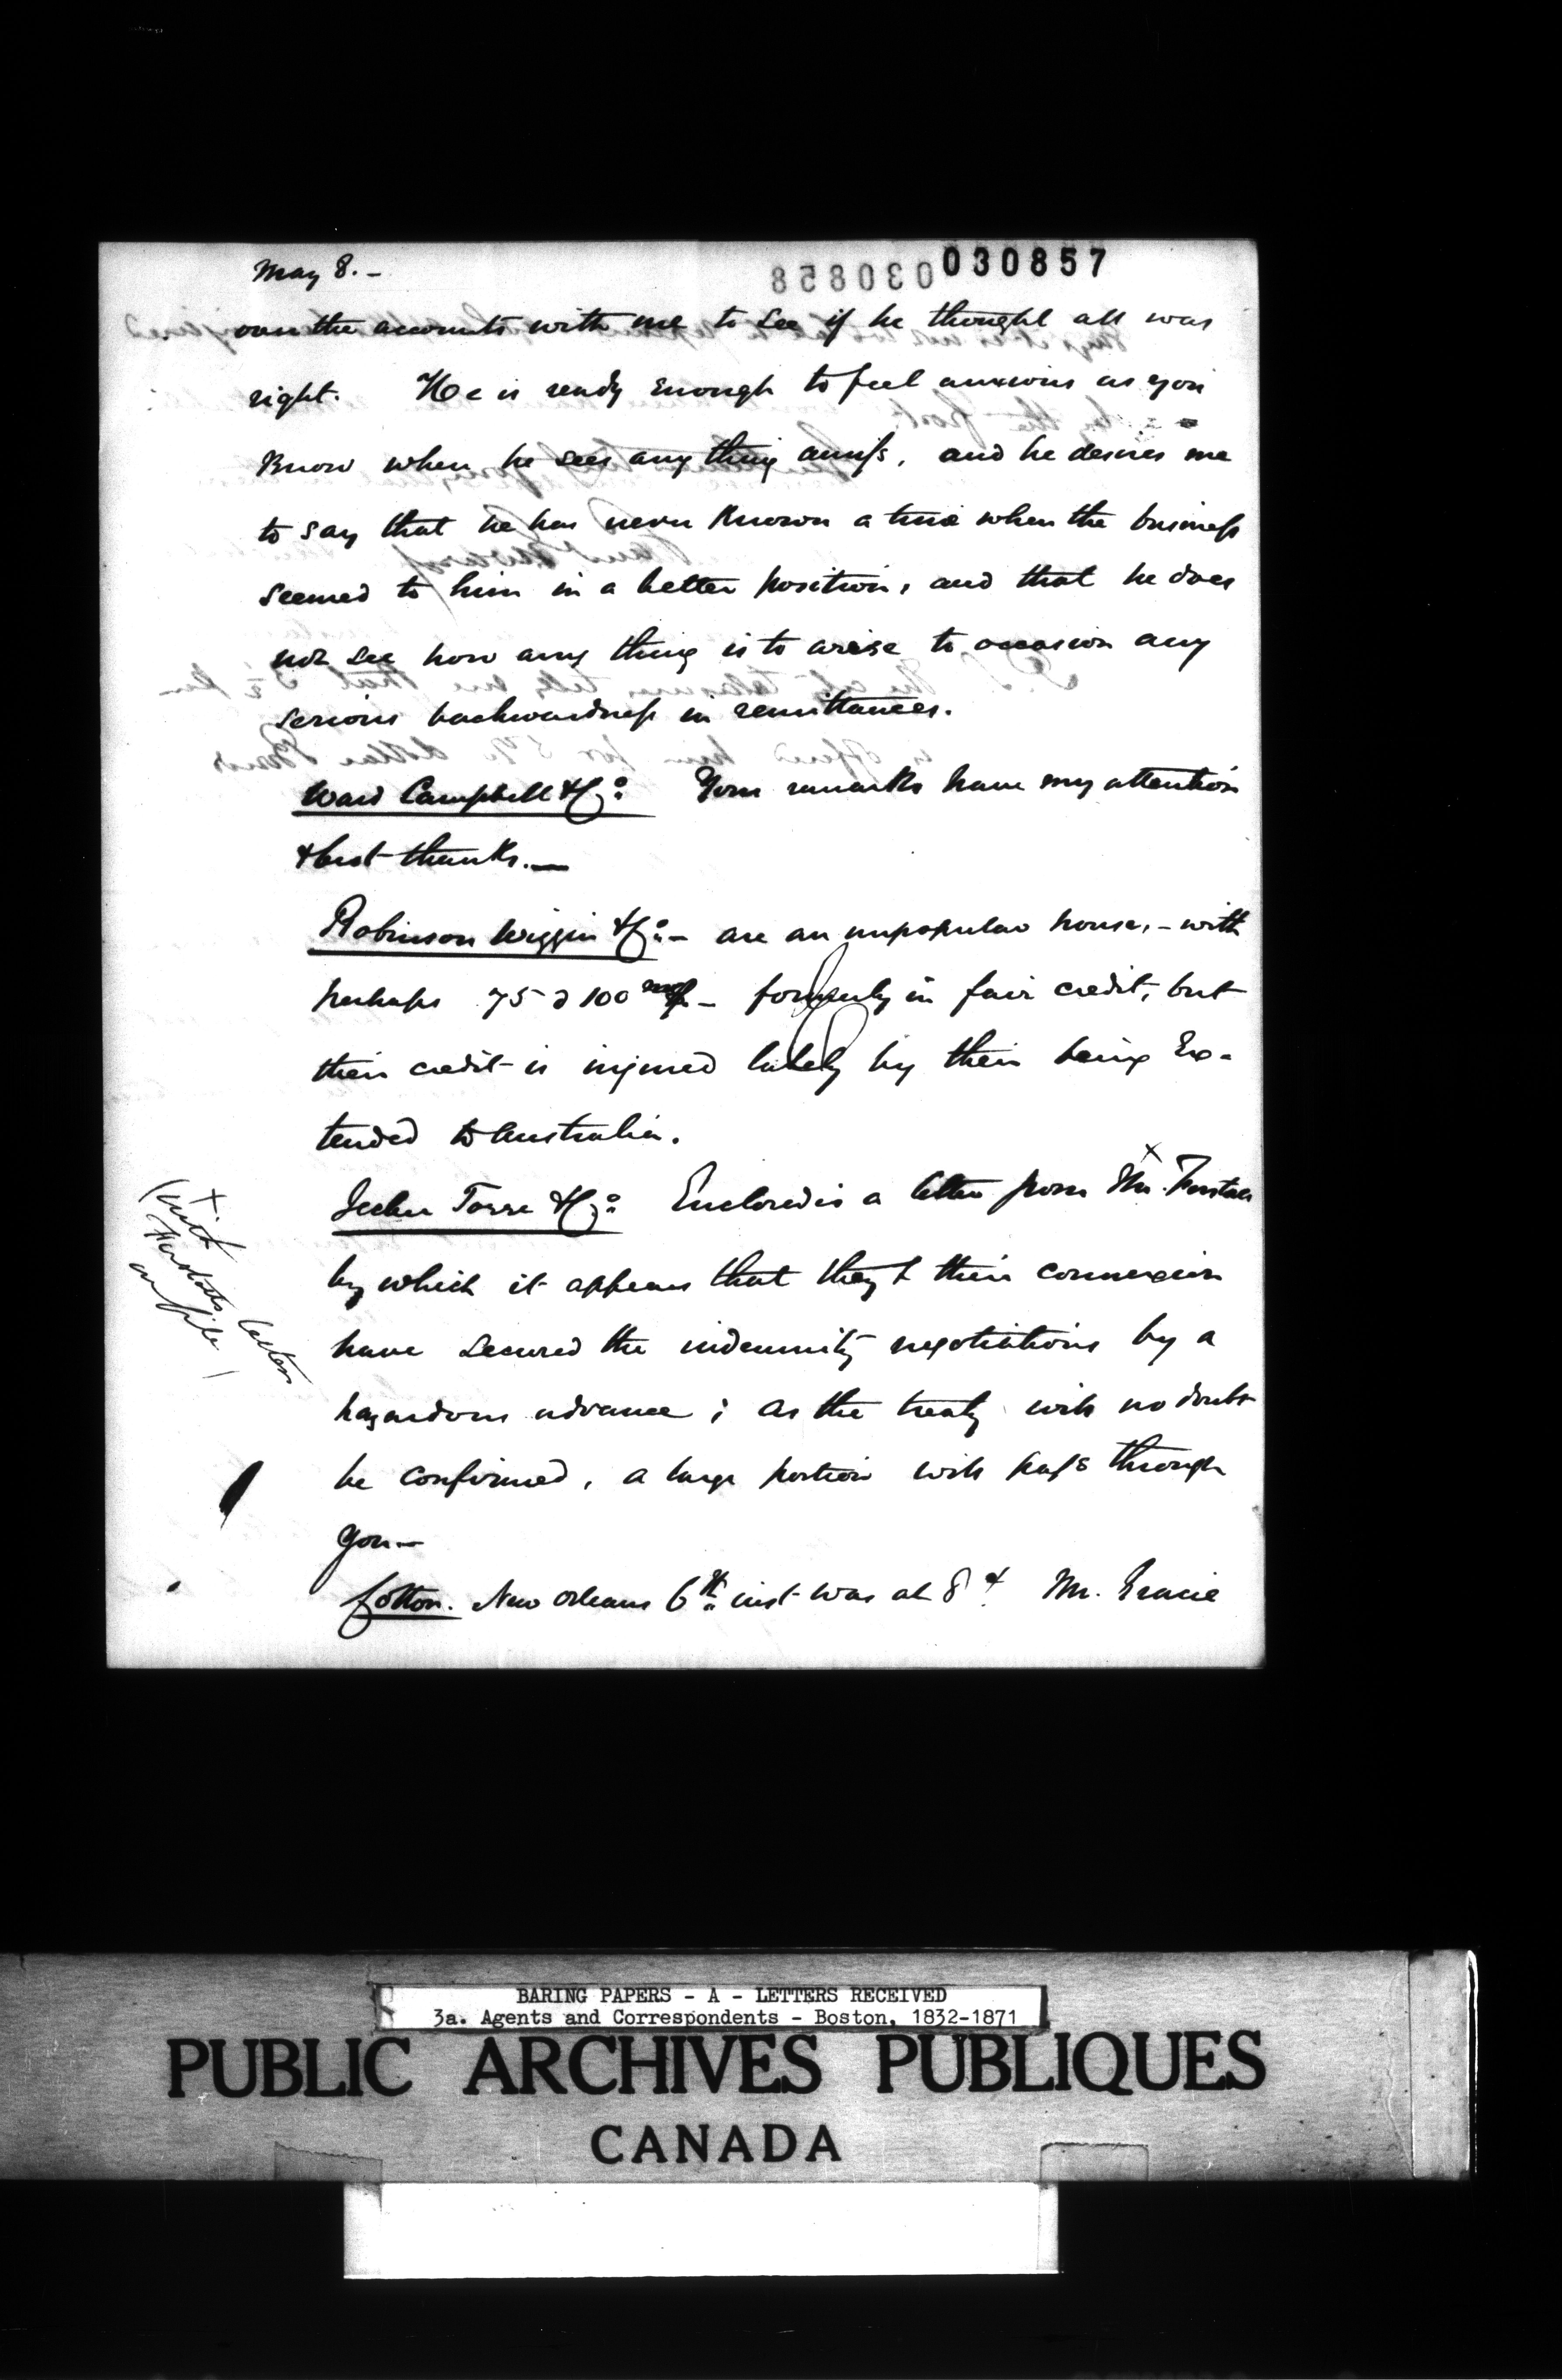 May 8.-
030857
over the accounts with me to see if he thought all was
right. He is ready enough to feel anxious as you
know when he sees any thing amiss, and he desires me
to say that he has never known a time when the business
seemed to him in a better position, and that he does
not see how any thing is to arise to occasion any
serious backwardness in remittances.
Ward Campbell & Co: Your remarks have my attention
& best thanks.—
Robinson Wiggin & Co:- are an unpopular house, - with
perhaps 75 a 100 - formerly in fair credit, but
their credit is injured lately by their being Ex-
tended to Australia.
Jecker Torre & Co: Enclosed is a letter from Mr. Forstall
by which it appears that they & their connexion
have secured the indemnity negotiations by a
hazardous advance; as the treaty will no doubt
be confirmed, a large portion will pass through
you—
Cotton. New Orleans 6th inst was at 8 Mr. Gracie
x
(with
Forstalls letters
on file)
BARING PAPERS - A - LETTERS RECEIVED
3a. Agents and Correspondents - Boston, 1832-1871
PUBLIC ARCHIVES PUBLIQUES
CANADA